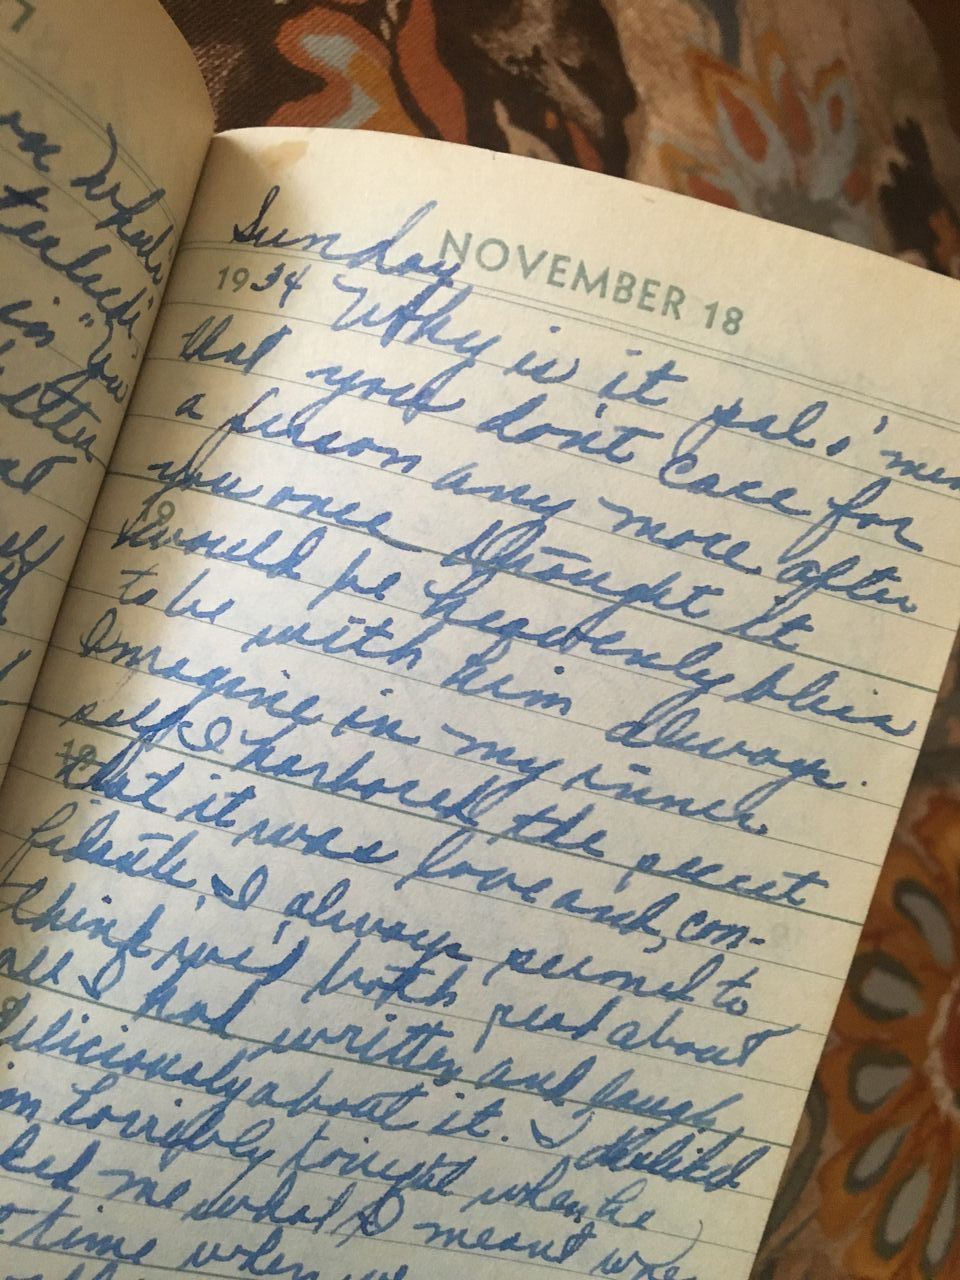 Sunday
NOVEMBER 18
1934 Why is it pal, i mean
that you don't care for
a person any more after
you once thought it
would be heavenly bliss
to be with him always.
Imagine in my inner
self I harbored the secret
that it was love and, con-
fidate, I always seemed to
think we'd both read about
all I had written and laugh
deliciously about it. I disliked
him horribly tonight when he
asked me what I meant
time when we